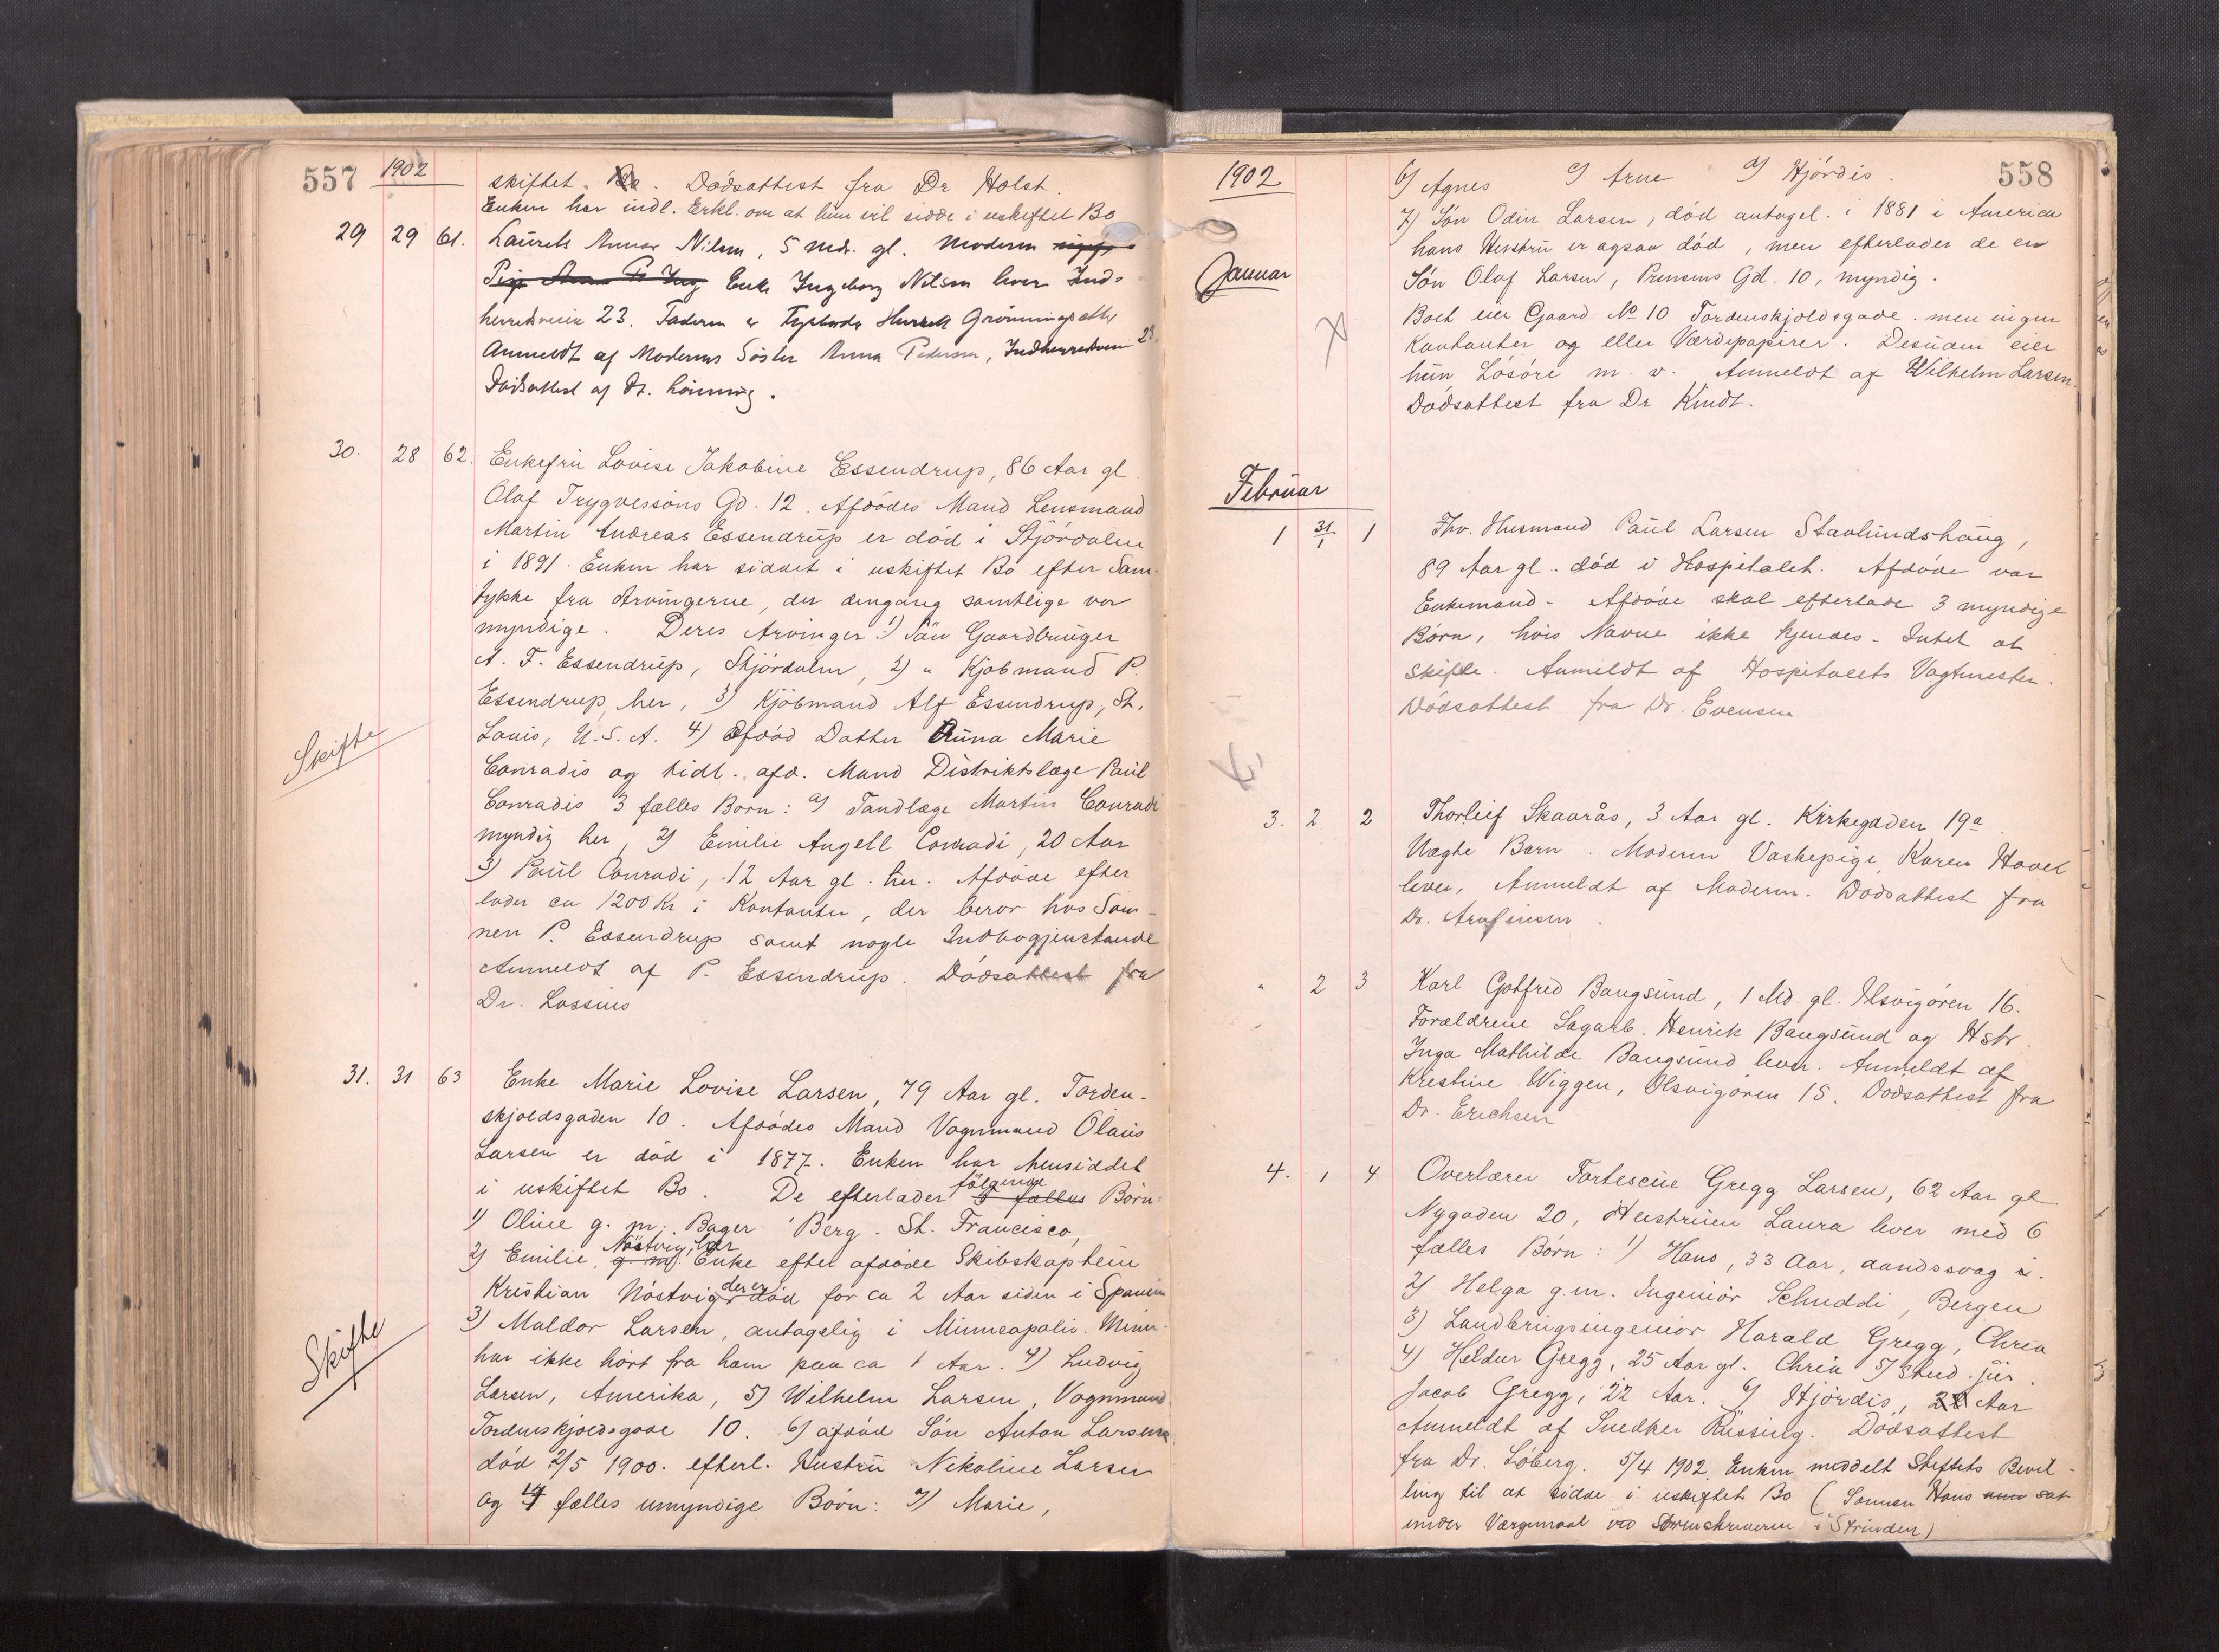 557
1902
skiftet. Dødsattest fra Dr Holst.
Enken har indl. Erkl. om at hun vil sidde i uskiftet Bo
29 29 61. Laurits Annar Nilsen, 5 Mdr. gl. Moderen
Enke Ingeborg Nilsen lever Ind-
herredsveien 23. Faderen er Henrik
Anmeldt af Moderens Søster Anna Pedersen, Indherredsveien 23.
Dødsattest af Dr. Lønning.
30. 28 62. Enkefru Lovise Jakobine Essendrup, 86 Aar gl
Olaf Trygvessøns Gd. 12. Afdødes Mand Lensmand
Martin Andreas Essendrup er død i Stjørdalen
i 1891. Enken har siddet i uskiftet Bo efter Sam-
tykke fra Arvingerne, der dengang samtlige var
myndige. Deres Arvinger: 1) Søn Gaardbruger
A. F. Essendrup, Stjørdalen, 2) " Kjøbmand P.
Essendrup, her, 3) Kjøbmand Alf Essendrup, St.
Louis, U.S.A. 4) Afdød Datter Anna Marie
Skifte
Conradis og tidl. afd. Mand Distriktslæge Paul
Conradis 3 fælles Børn: a) Tandlæge Martin Conradi
myndig her, 2) Emilie Angell Conradi, 20 Aar
3) Paul Conradi, 12 Aar gl. her. Afdøde efter
lader ca 1200 Kr i Kontanter, der beror hos Søn-
nen P. Essendrup samt nogle Indbogjenstande
Anmeldt af P. Essendrup. Dødsattest fra
Dr. Lossius
31. 31 63 Enke Marie Lovise Larsen, 79 Aar gl. Torden-
skjoldsgaden 10. Afdødes Mand Vognmand Olaus
Larsen er død i 1877. Enken har hensiddet
i uskiftet Bo. De efterlader følgende fælles Børn:
1) Oline g. m. Bager Berg. St. Francisco,
2) Emilie Nøstvig, her g. m. Enke efter afdøde Skibskaptein
Kristian Nøstvig der er død for ca 2 Aar siden i Spanien
3) Maldor Larsen, antagelig i Minneapolis. Minn.
har ikke hørt fra ham paa ca 1 Aar. 4) Ludvig
Skifte
Larsen, Amerika, 5) Wilhelm Larsen, Vognmand
Tordenskjoldsgade 10. 6) afdød Søn Anton Larsen
død 2/5 1900. efterl. Hustru Nikoline Larsen
og 4 fælles umyndige Børn: a) Marie,
1902
558
b) Agnes c) Arne d) Hjørdis.
7) Søn Odin Larsen, død antagel. i 1881 i America
hans Hustru er ogsaa død, men efterlader de en
Januar
Søn Olaf Larsen, Prinsens Gd. 10, myndig.
Boet eier Gaard No 10 Tordenskjoldsgade. men ingen
Kontanter og eller Værdipapirer. Desuden eier
hun Løsøre m. v. Anmeldt af Wilhelm Larsen.
Dødsattest fra Dr Kindt.
Februar
1 31/1 1 Fhv. Husmand Paul Larsen Stavlundshaug,
89 Aar gl. død i Hospitalet. Afdøde var
Enkemand - Afdøde skal efterlade 3 myndige
Børn, hvis Navne ikke kjendes - Intet at
skifte. Anmeldt af Hospitalets Vagtmester.
Dødsattest fra Dr. Evensen
3. 2 2 Thorleif Skaarås, 3 Aar gl. Kirkegaden 19a
Uægte Barn. Moderen Vaskepige Karen Hovel
lever, Anmeldt af Moderen. Dødsattest fra
Dr. Arnfinsen.
" 2 3 Karl Gotfred Bangsund, 1 Md. gl. Ilsvigøren 16.
Forældrene Sagarb. Henrik Bangsund og Hstr.
Inga Mathilde Bangsund lever. Anmeldt af
Kristine Wiggen, Ilsvigøren 15. Dødsattest fra
Dr. Erichsen
4. 1 4 Overlærer Fortescue Gregg Larsen, 62 Aar gl
Nygaden 20, Hustruen Laura lever med 6
fælles Børn: 1) Hans, 33 Aar, aandssvag
2) Helga g.m. Ingeniør Schuddi, Bergen
3) Landbrugsingeniør Harald Gregg, Chria
4) Heldur Gregg, 25 Aar gl. Chria 5) Stud. jur.
Jacob Gregg, 22 Aar. 6) Hjørdis, Aar
Anmeldt af Snedker Russing. Dødsattest
fra Dr. Løberg. 5/4 1902. Enken meddelt Skiftets Bevil-
ling til at sidde i uskiftet Bo (Sønnen Hans sat
under Værgemaal ved Sorenskriveren i Strinden)